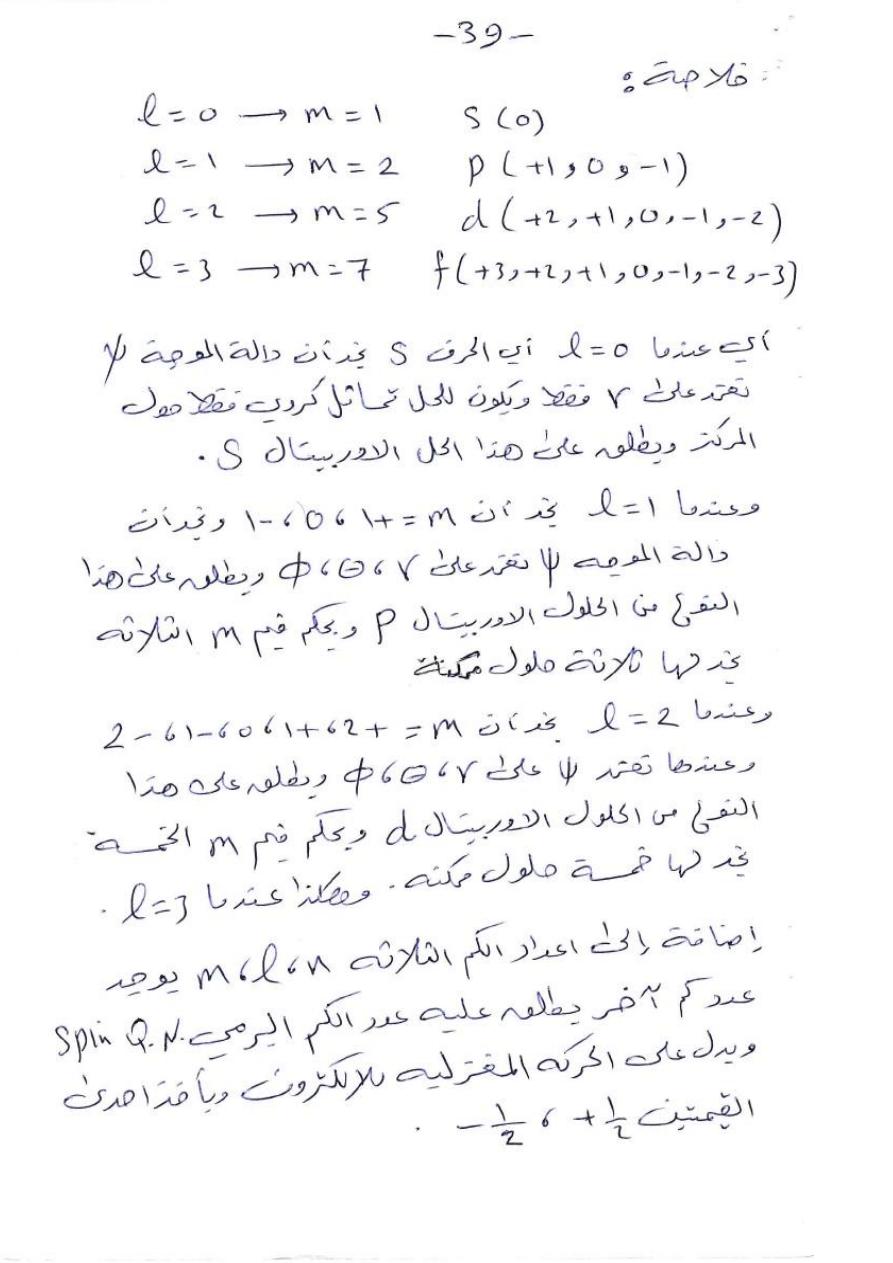 -39-
خلاصة:
l = 0 → m = 1 S (0)
l = 1 → m = 2 p (+1, 0, -1)
l = 2 → m = 5 d (+2, +1, 0, -1, -2)
l = 3 → m = 7 f (+3, +2, +1, 0, -1, -2, -3)
أي عندما l = 0 أي الحرف S نجد أن دالة الموجة ψ
تعتمد على r فقط ويكون للحل تماثل كروي فقط حول
المركز ويطلق على هذا الحل الاوربيتال S.
وعندما l = 1 نجد أن m = +1، 0، -1 ونجد أن
دالة الموجه ψ تعتمد على r، θ، φ ويطلق على هذا
النوع من الحلول الاوربيتال P وبحكم قيم m الثلاثه
نجد لها ثلاثة حلول ممكنة
وعندما l = 2 نجد أن m = +2، +1، 0، -1، -2
وعندها تعتمد ψ على r، θ، φ ويطلق على هذا
النوع من الحلول الاوربيتال d وبحكم قيم m الخمسة
نجد لها خمسة حلول ممكنه. وهكذا عندما l = 3.
إضافة إلى اعداد الكم الثلاثه n، l، m يوجد
عدد كم آخر يطلق عليه عدد الكم البرمي Spin Q.N.
ويدل على الحركه المغزليه للالكترون ويأخذ احدى
القيمتين +1/2، -1/2.